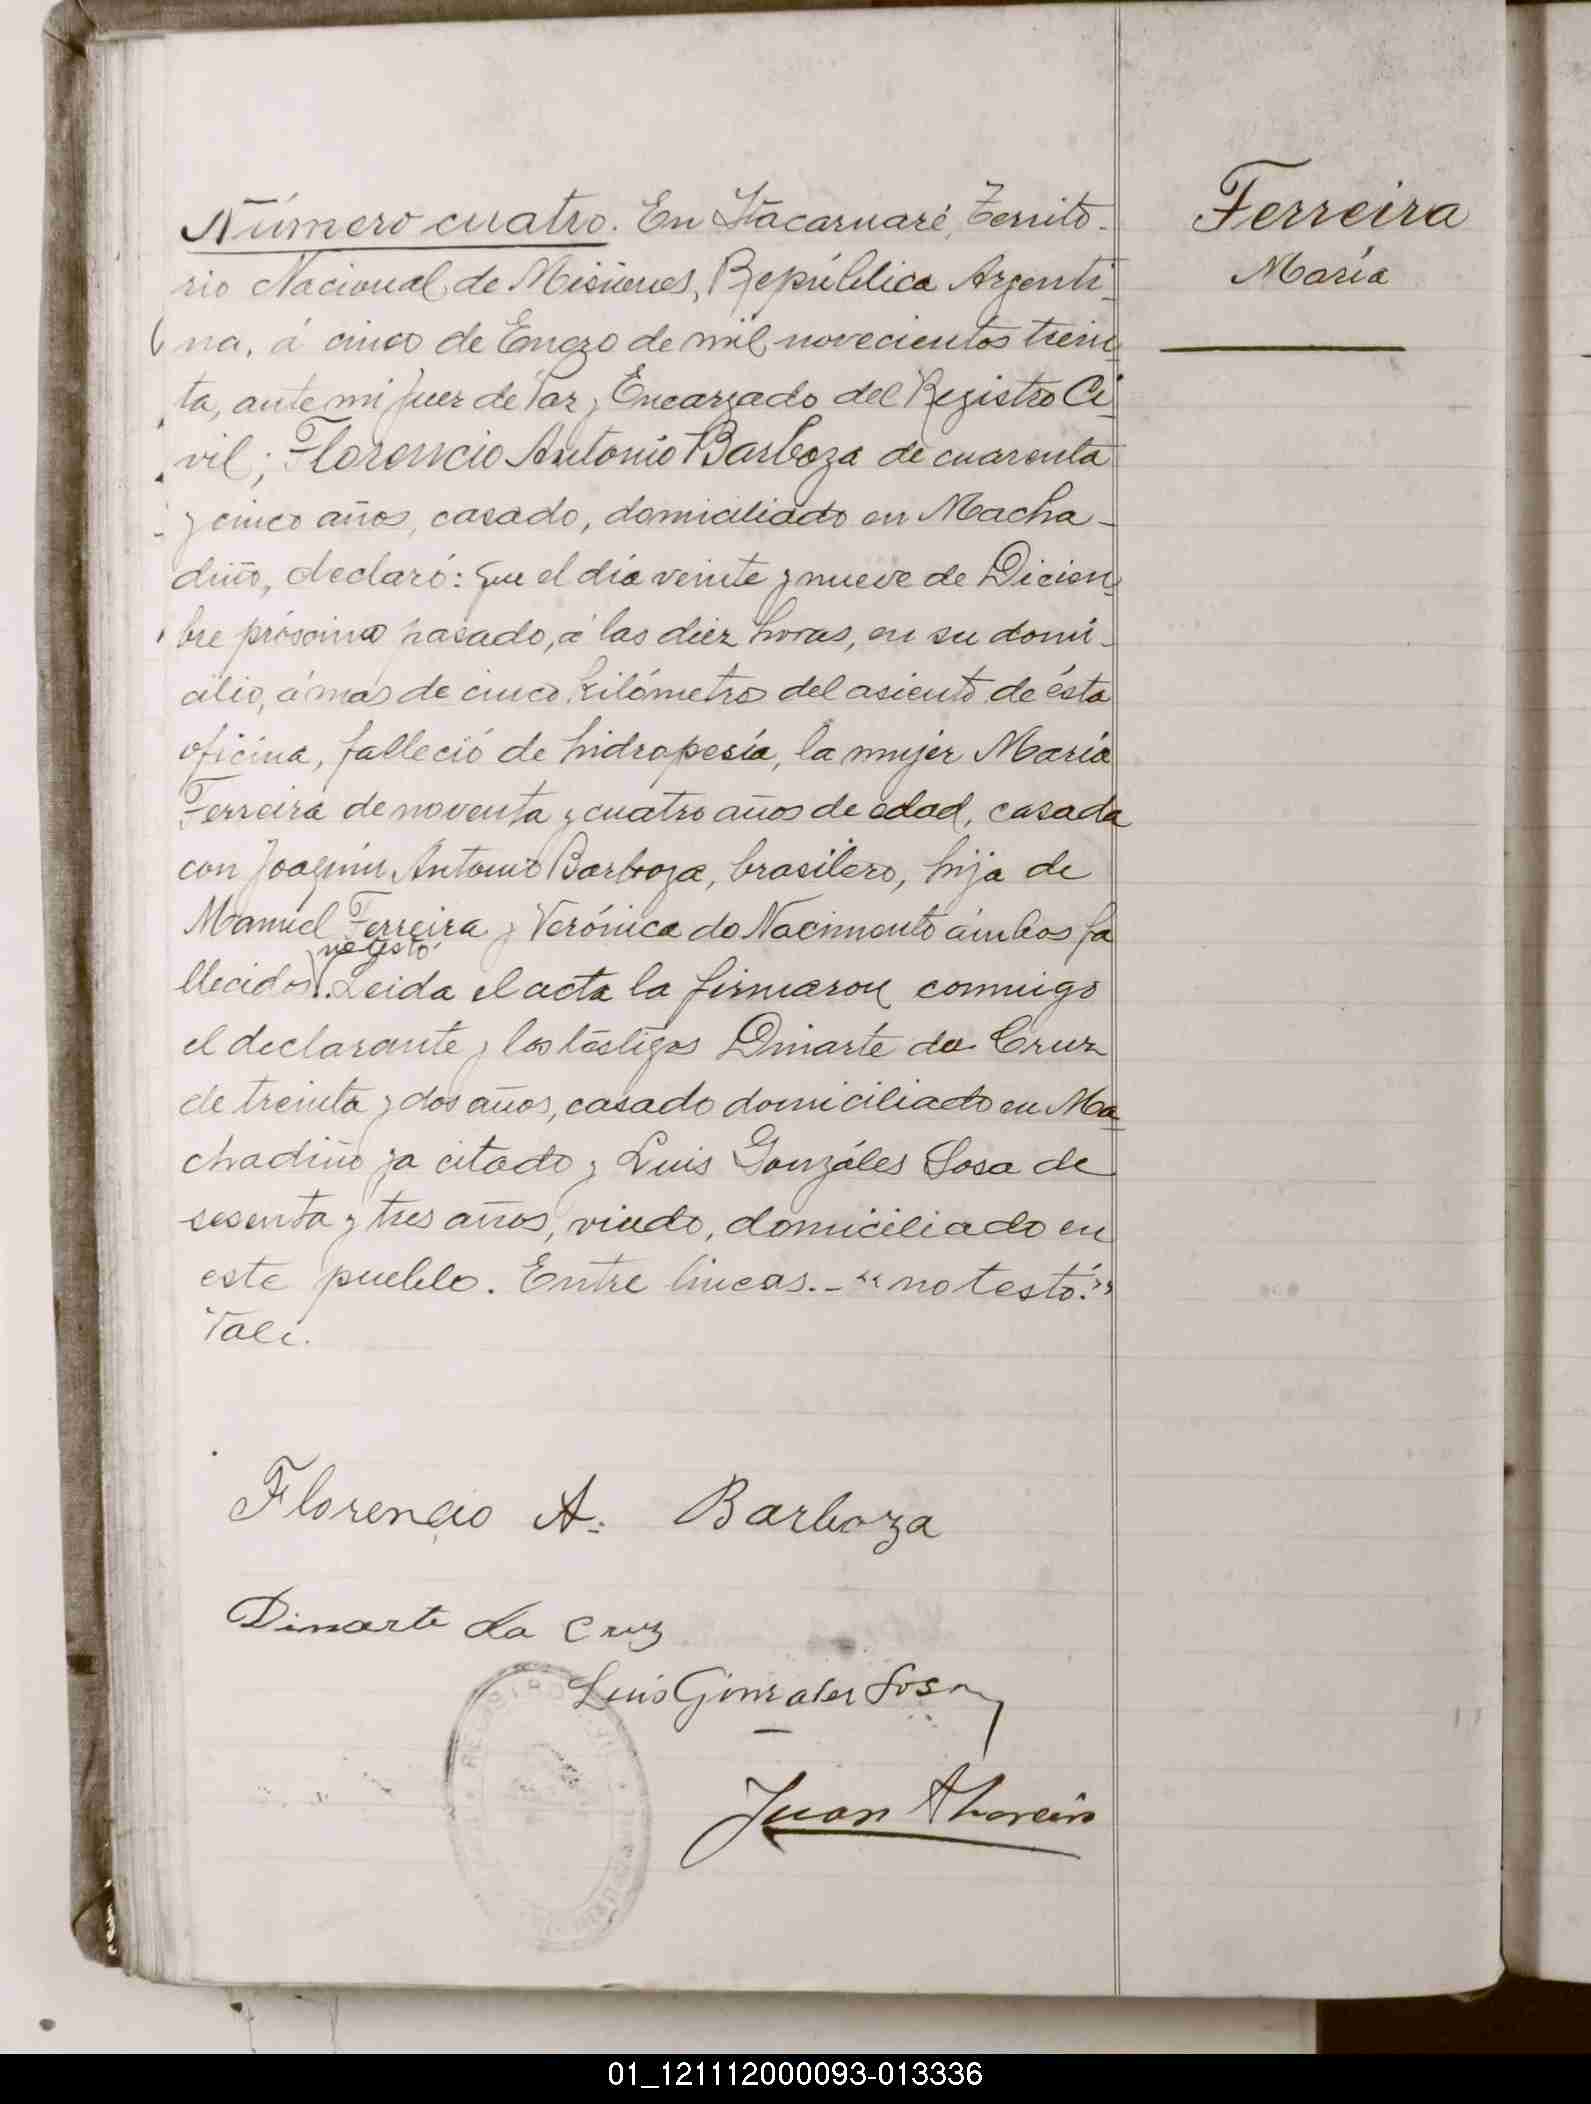 Número cuatro. En Itacaruaré, Territo-
rio Nacional de Misiones, República Argenti-
na, á cinco de Enero de mil novecientos trein-
ta, ante mi Juez de Paz y Encargado del Registro Ci-
vil; Florencio Antonio Barboza de cuarenta
y cinco años, casado, domiciliado en Macha-
diño, declaró: Que el día veinte y nueve de Diciem-
bre próximo pasado, á las diez horas, en su domi-
cilio, á mas de cinco kilómetros del asiento de ésta
oficina, falleció de hidropesía, la mujer María
Ferreira de noventa y cuatro años de edad, casada
con Joaquin Antonio Barboza, brasilero, hija de
Manuel Ferreira y Verónica do Nacimento ámbos fa
no testó
llecidos. Leida el acta la firmaron conmigo
el declarante y los téstigos Dinarte da Cruz
de treinta y dos años, casado domiciliado en Ma-
chadiño ya citado y Luis Gonzáles Sosa de
sesenta y tres años, viudo, domiciliado en
este pueblo. Entre lineas.- "no testó."
Vale.
Ferreira
María
Florencio A. Barboza
Dinarte da Cruz
Luis Gonzales Sosa
Juan
REGISTRO CIVIL
01_121112000093-013336